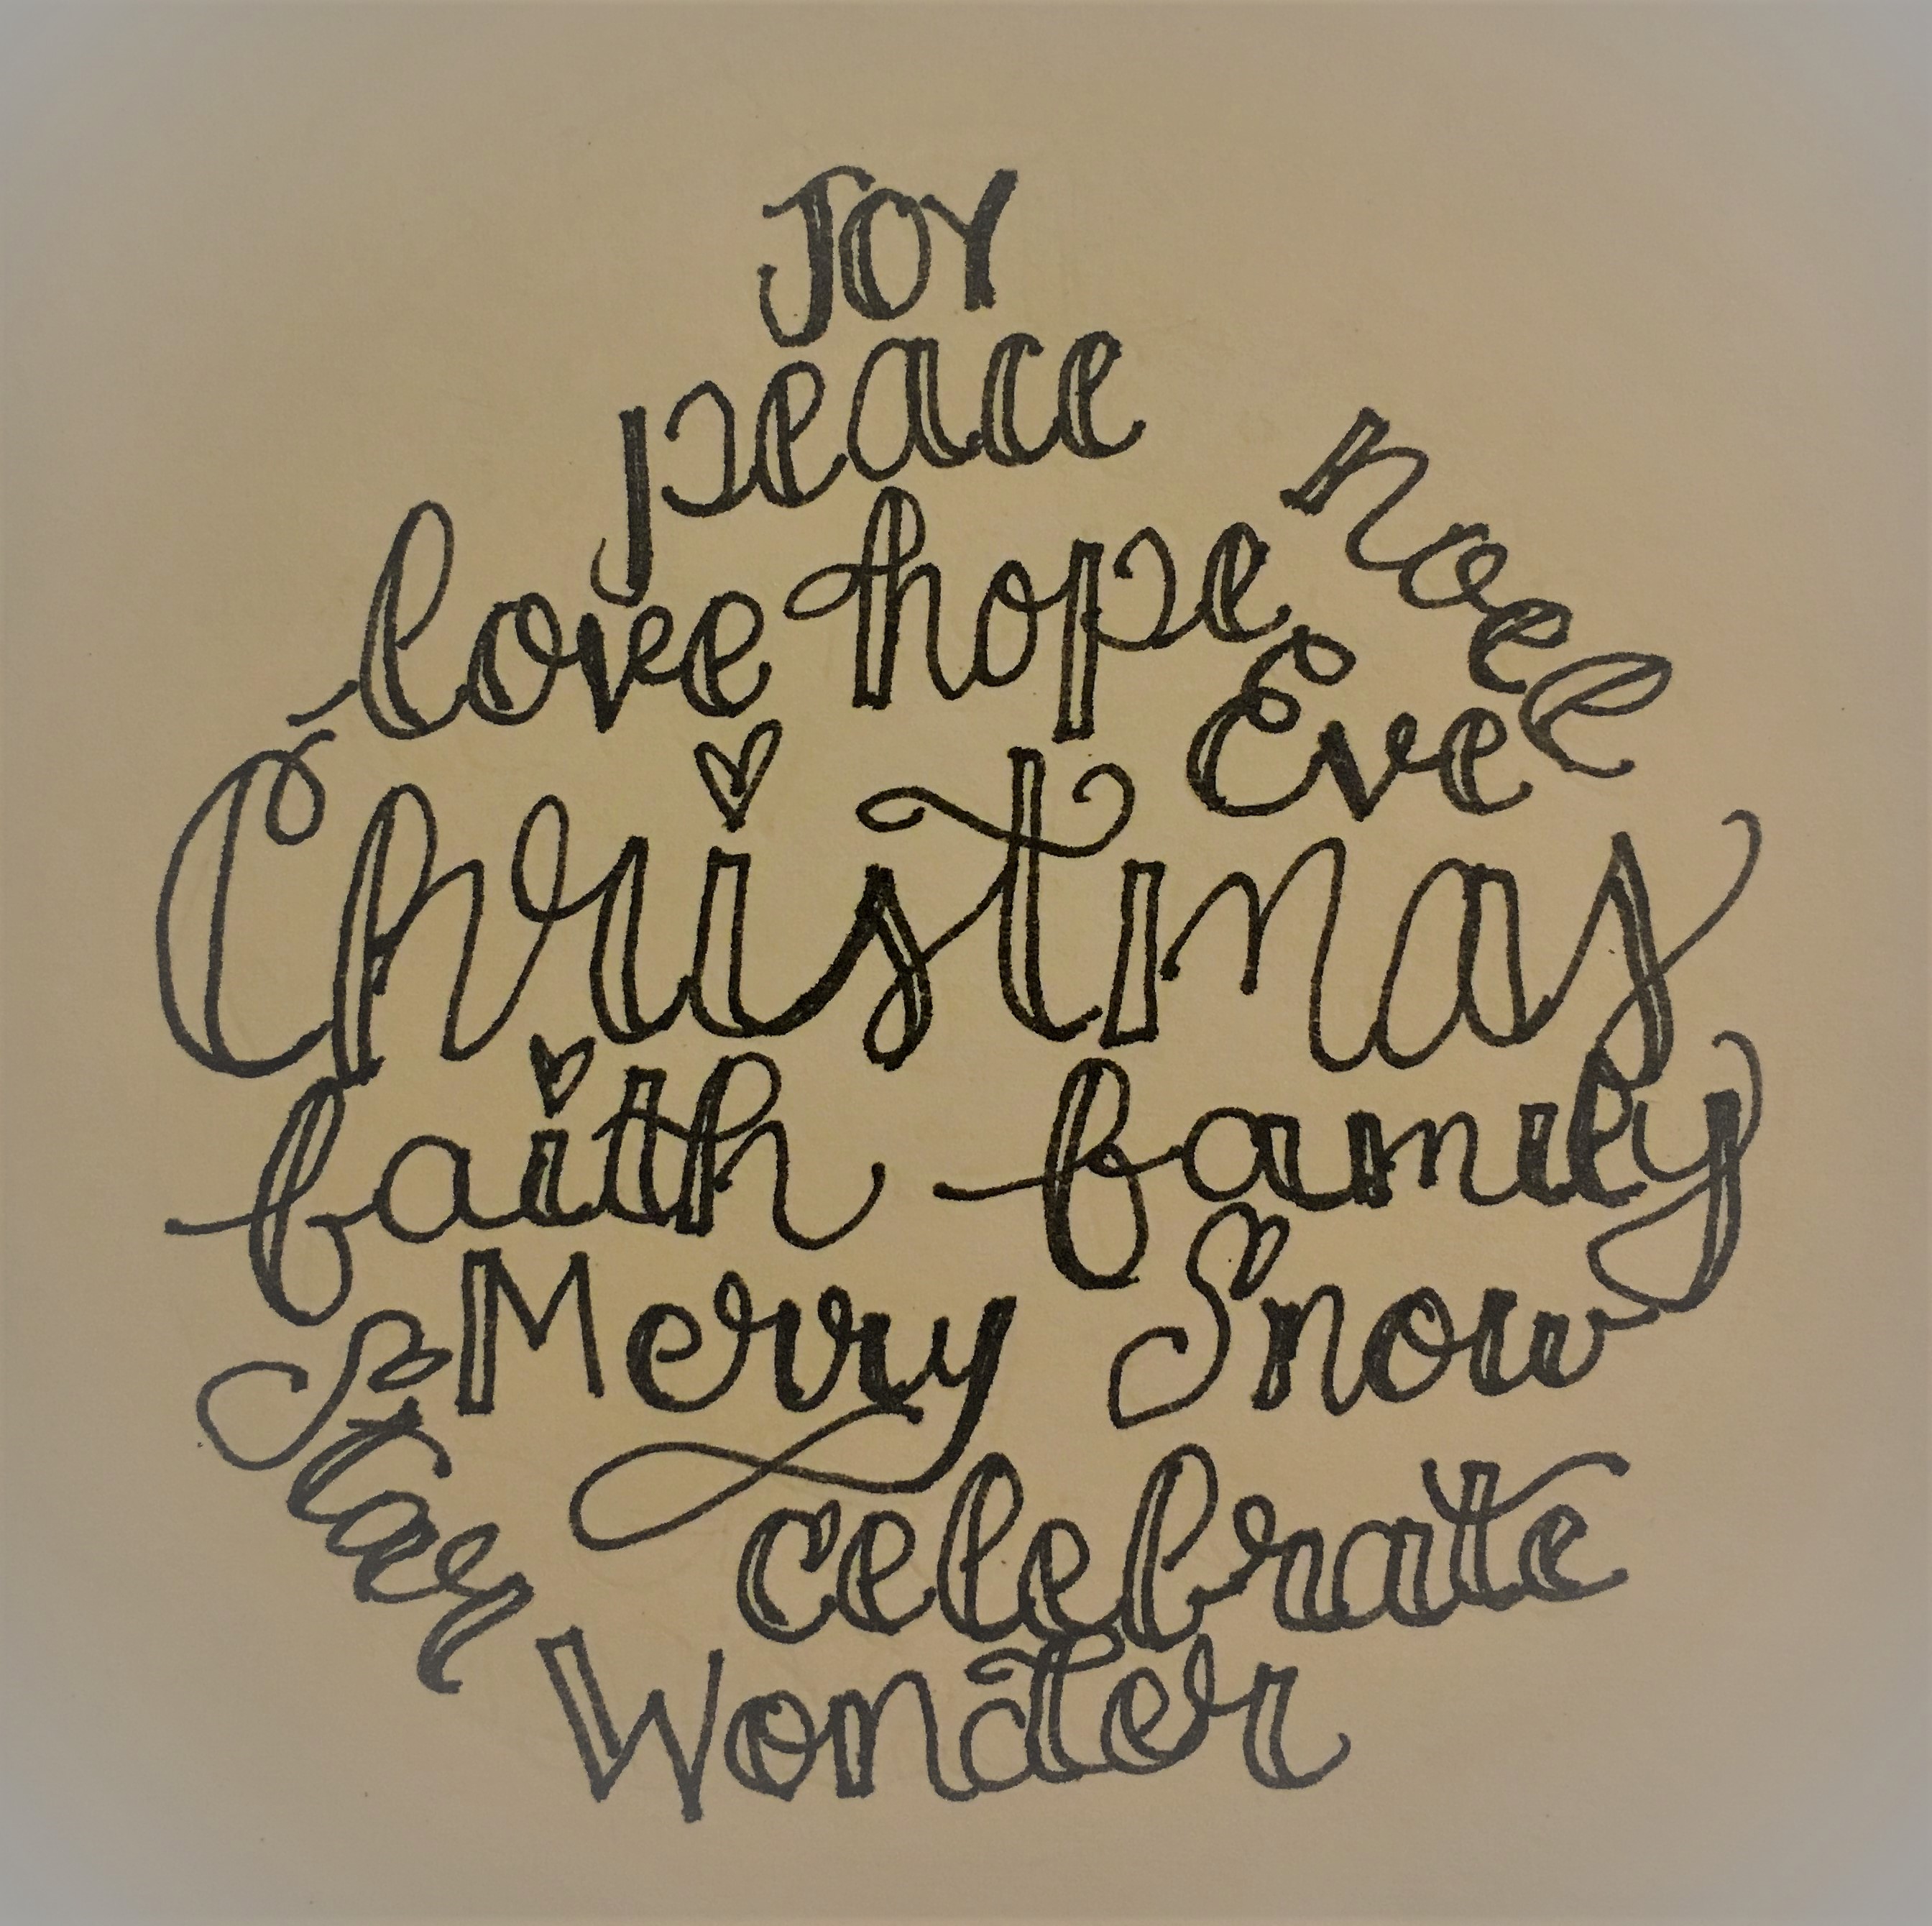 JOY
peace
noel
love hope
Eve
Christmas
faith family
Merry Snow
Stay
celebrate
Wonder